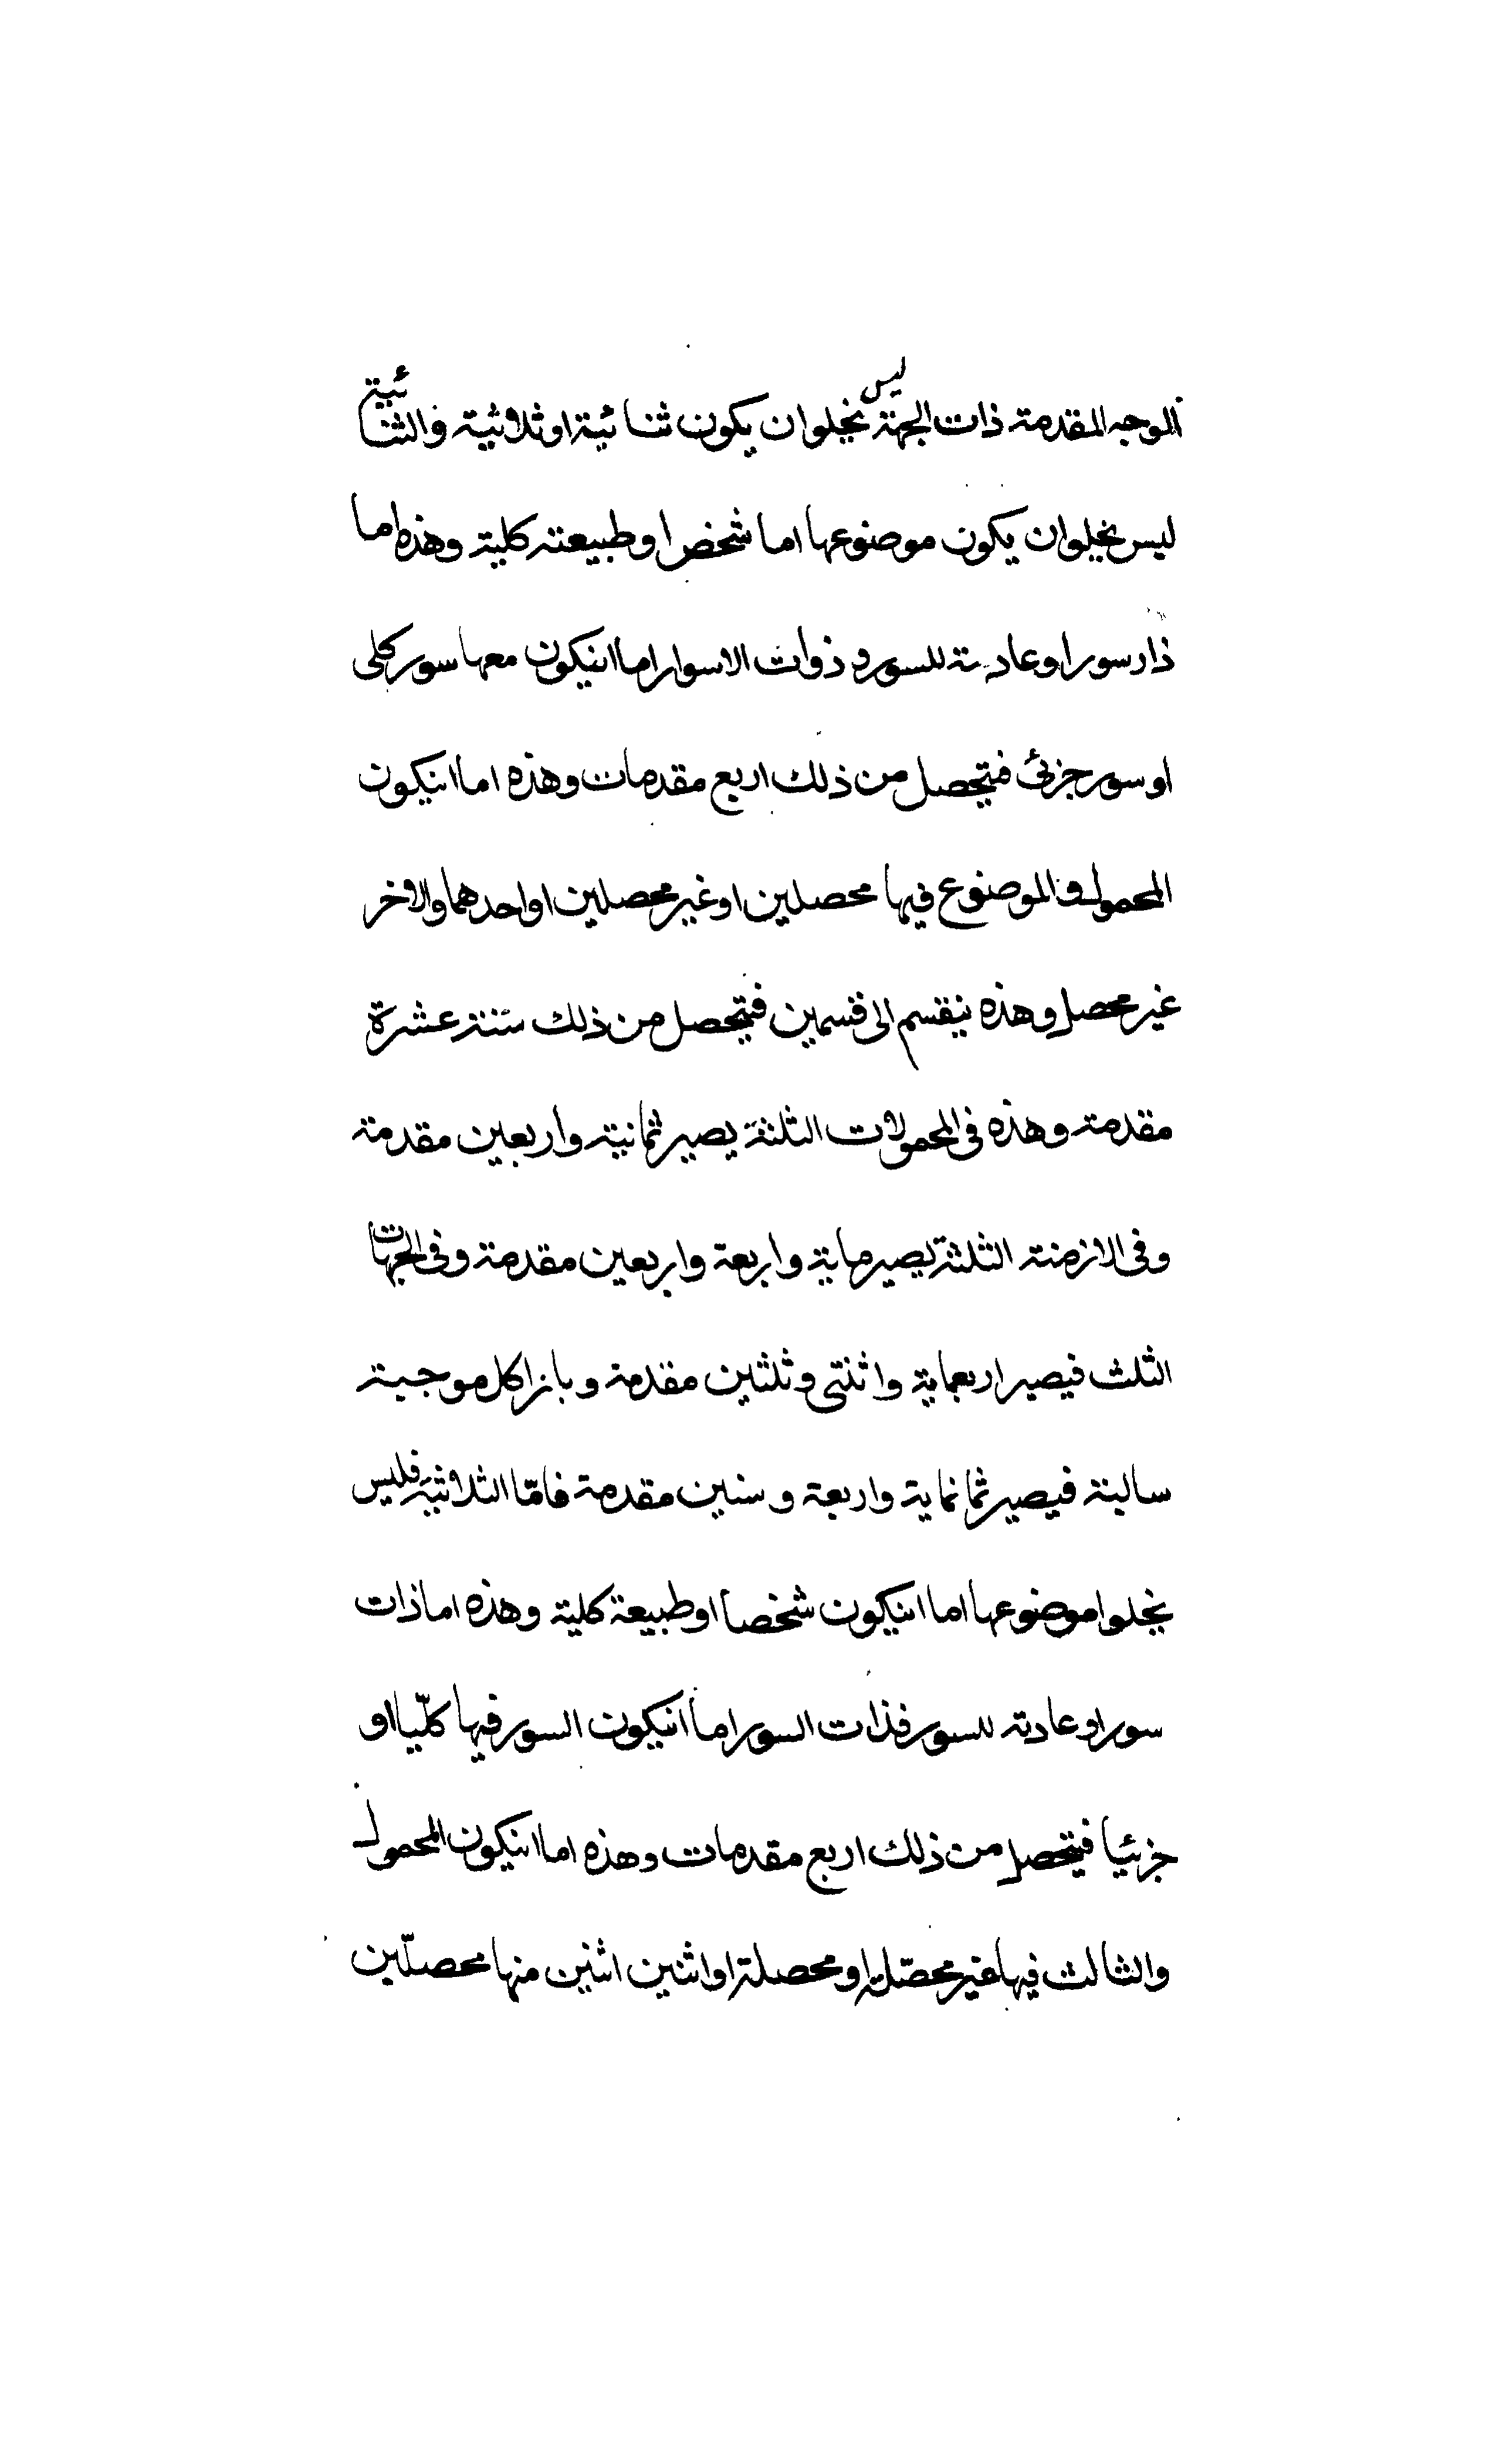 الوجه المقدمة ذات الجهة ليس يخلوا ن يكون ثنائية او ثلاثية والثنائية
ليس يخلوا ن يكون موضوعها اما شخص او طبيعته كلية وهذه اما
ذا سور او عادية للسور و ذوات الاسوار اما انيكون معها سور كلى
او سور جزئى فيتحصل من ذلك اربع مقدمات وهذه اما انيكون
المحمول والموضوع فيها محصلين او غير محصلين او احدهما والاخر
غير محصل وهذه ينقسم الى قسمين فيتحصل من ذلك ستة عشرة
مقدمة وهذه فى المحمولات الثلثة يصير ثمانية واربعين مقدمة
وفى الازمنة الثلثة يصير ماية واربعة واربعين مقدمة وفى الجهات
الثلث فيصير اربعماية واثنتى وثلثين مقدمة وبازا كل موجبة
سالبة فيصير ثمانماية واربعة وستين مقدمة فامّا الثلاثية فليس
يخلوا موضوعها اما انيكون شخصا او طبيعة كلية وهذه اما ذات
سور او عادته للسور فذات السور اما انيكون السور فيها كلّيا او
جزئيا فيتحصل من ذلك اربع مقدمات وهذه اما انيكون المحمول
والثالث فيها غير محصّلة او محصلة او اثنين اثنين منها محصلّين